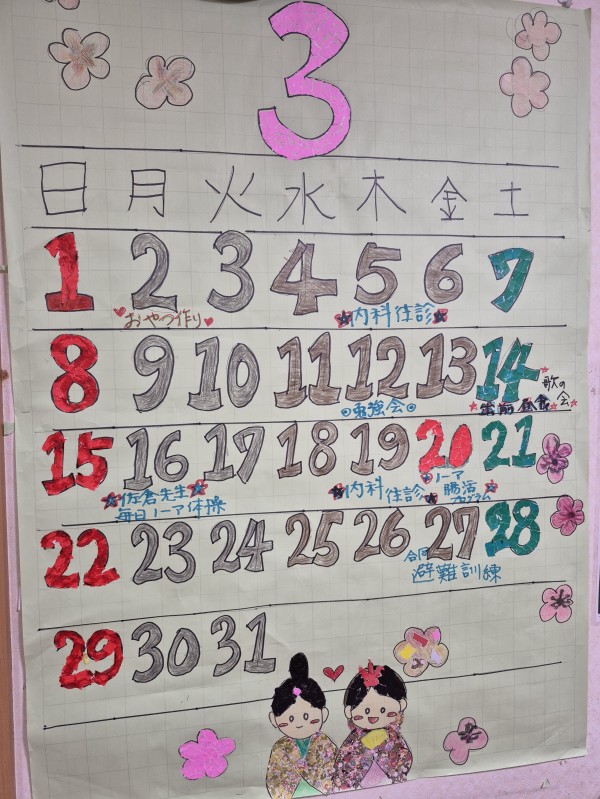 3
日 月 火 水 木 金 土
1 2 3 4 5 6 7
おやつ作り 内科往診
8 9 10 11 12 13 14
歌の会
勉強会
15 16 17 18 19 20 21
佐倉先生 内科往診 ノーア 腸活
毎日ノーア体操 プログラム
22 23 24 25 26 27 28
合同 避難訓練
29 30 31